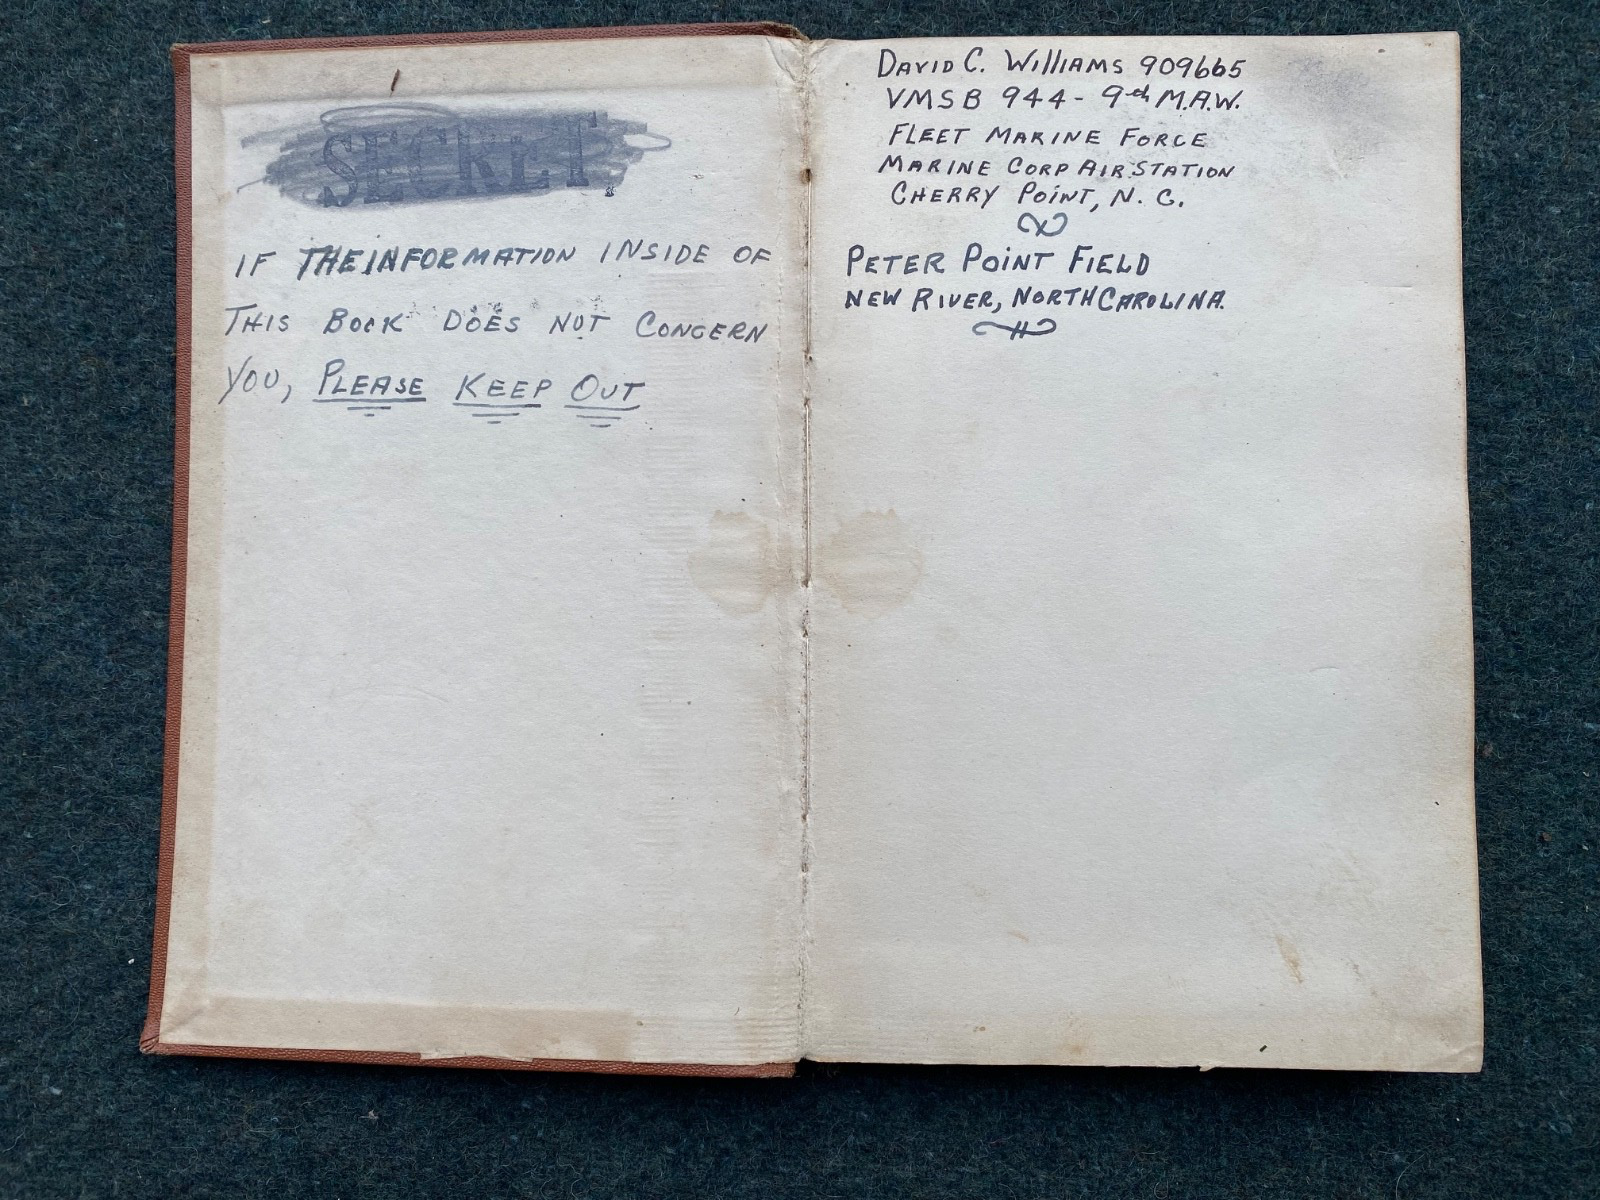 SECRET.
IF THE INFORMATION INSIDE OF
THIS BOOK DOES NOT CONCERN
YOU, PLEASE KEEP OUT
DAVID C. WILLIAMS 909665
VMSB 944 - 9th M.A.W.
FLEET MARINE FORCE
MARINE CORP AIR STATION
CHERRY POINT, N. C.
PETER POINT FIELD
NEW RIVER, NORTH CAROLINA.